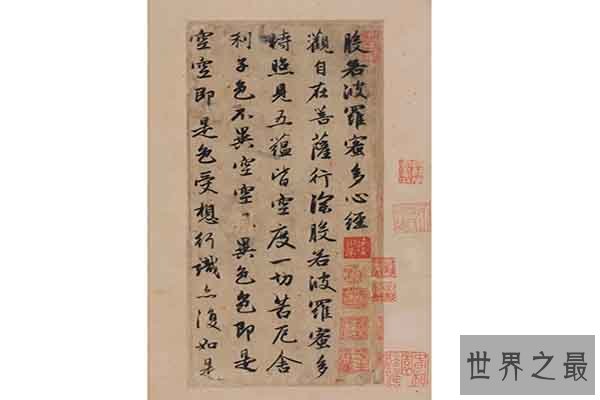 般若波羅蜜多心經
觀自在菩薩行深般若波羅蜜多
時照見五蘊皆空度一切苦厄舍
利子色不異空空不異色色即是
空空即是色受想行識亦復如是
世界之最